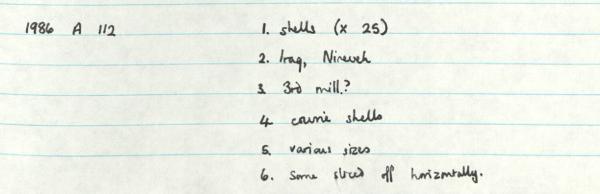 1986 A 112 1. shells (x 25)
2. Iraq, Nineveh
3. 3rd mill.?
4 cowrie shells
5. various sizes
6. Some sliced off horizontally.